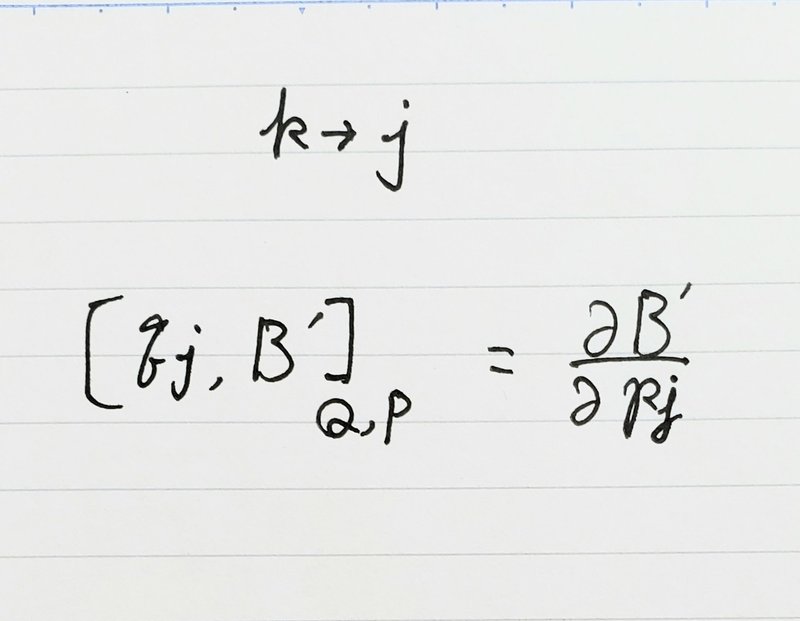 k → j
[qj, B′]Q,P = ∂B′/∂pj